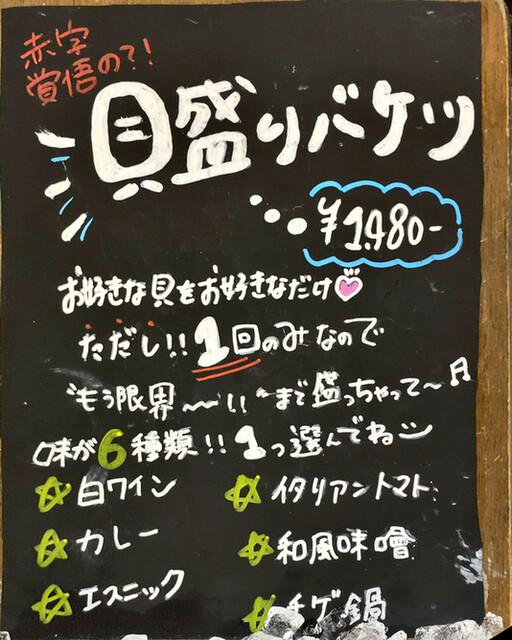 赤字
覚悟の?!
貝盛りバケツ
¥1,480-
お好きな貝をお好きなだけ
ただし!!1回のみなので
"もう限界〜〜!!"まで盛っちゃって〜♬
味が6種類!!1つ選んでね
☆白ワイン ☆イタリアントマト
☆カレー ☆和風味噌
☆エスニック ☆チゲ鍋